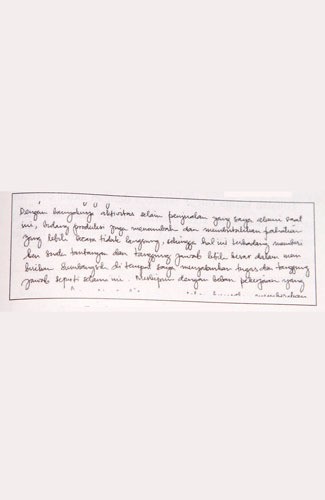 Dengan banyaknya aktivitas selain penjualan yang saya alami saat
ini, bidang produksi juga menambah dan membutuhkan perhatian
yang lebih secara tidak langsung, sehingga hal ini terkadang memberi
kan anda tantangan dan tanggung jawab lebih besar dalam mem
berikan di tempat saya menjalankan tugas dan tanggung
jawab seperti selama ini. Meskipun dengan beban pekerjaan yang